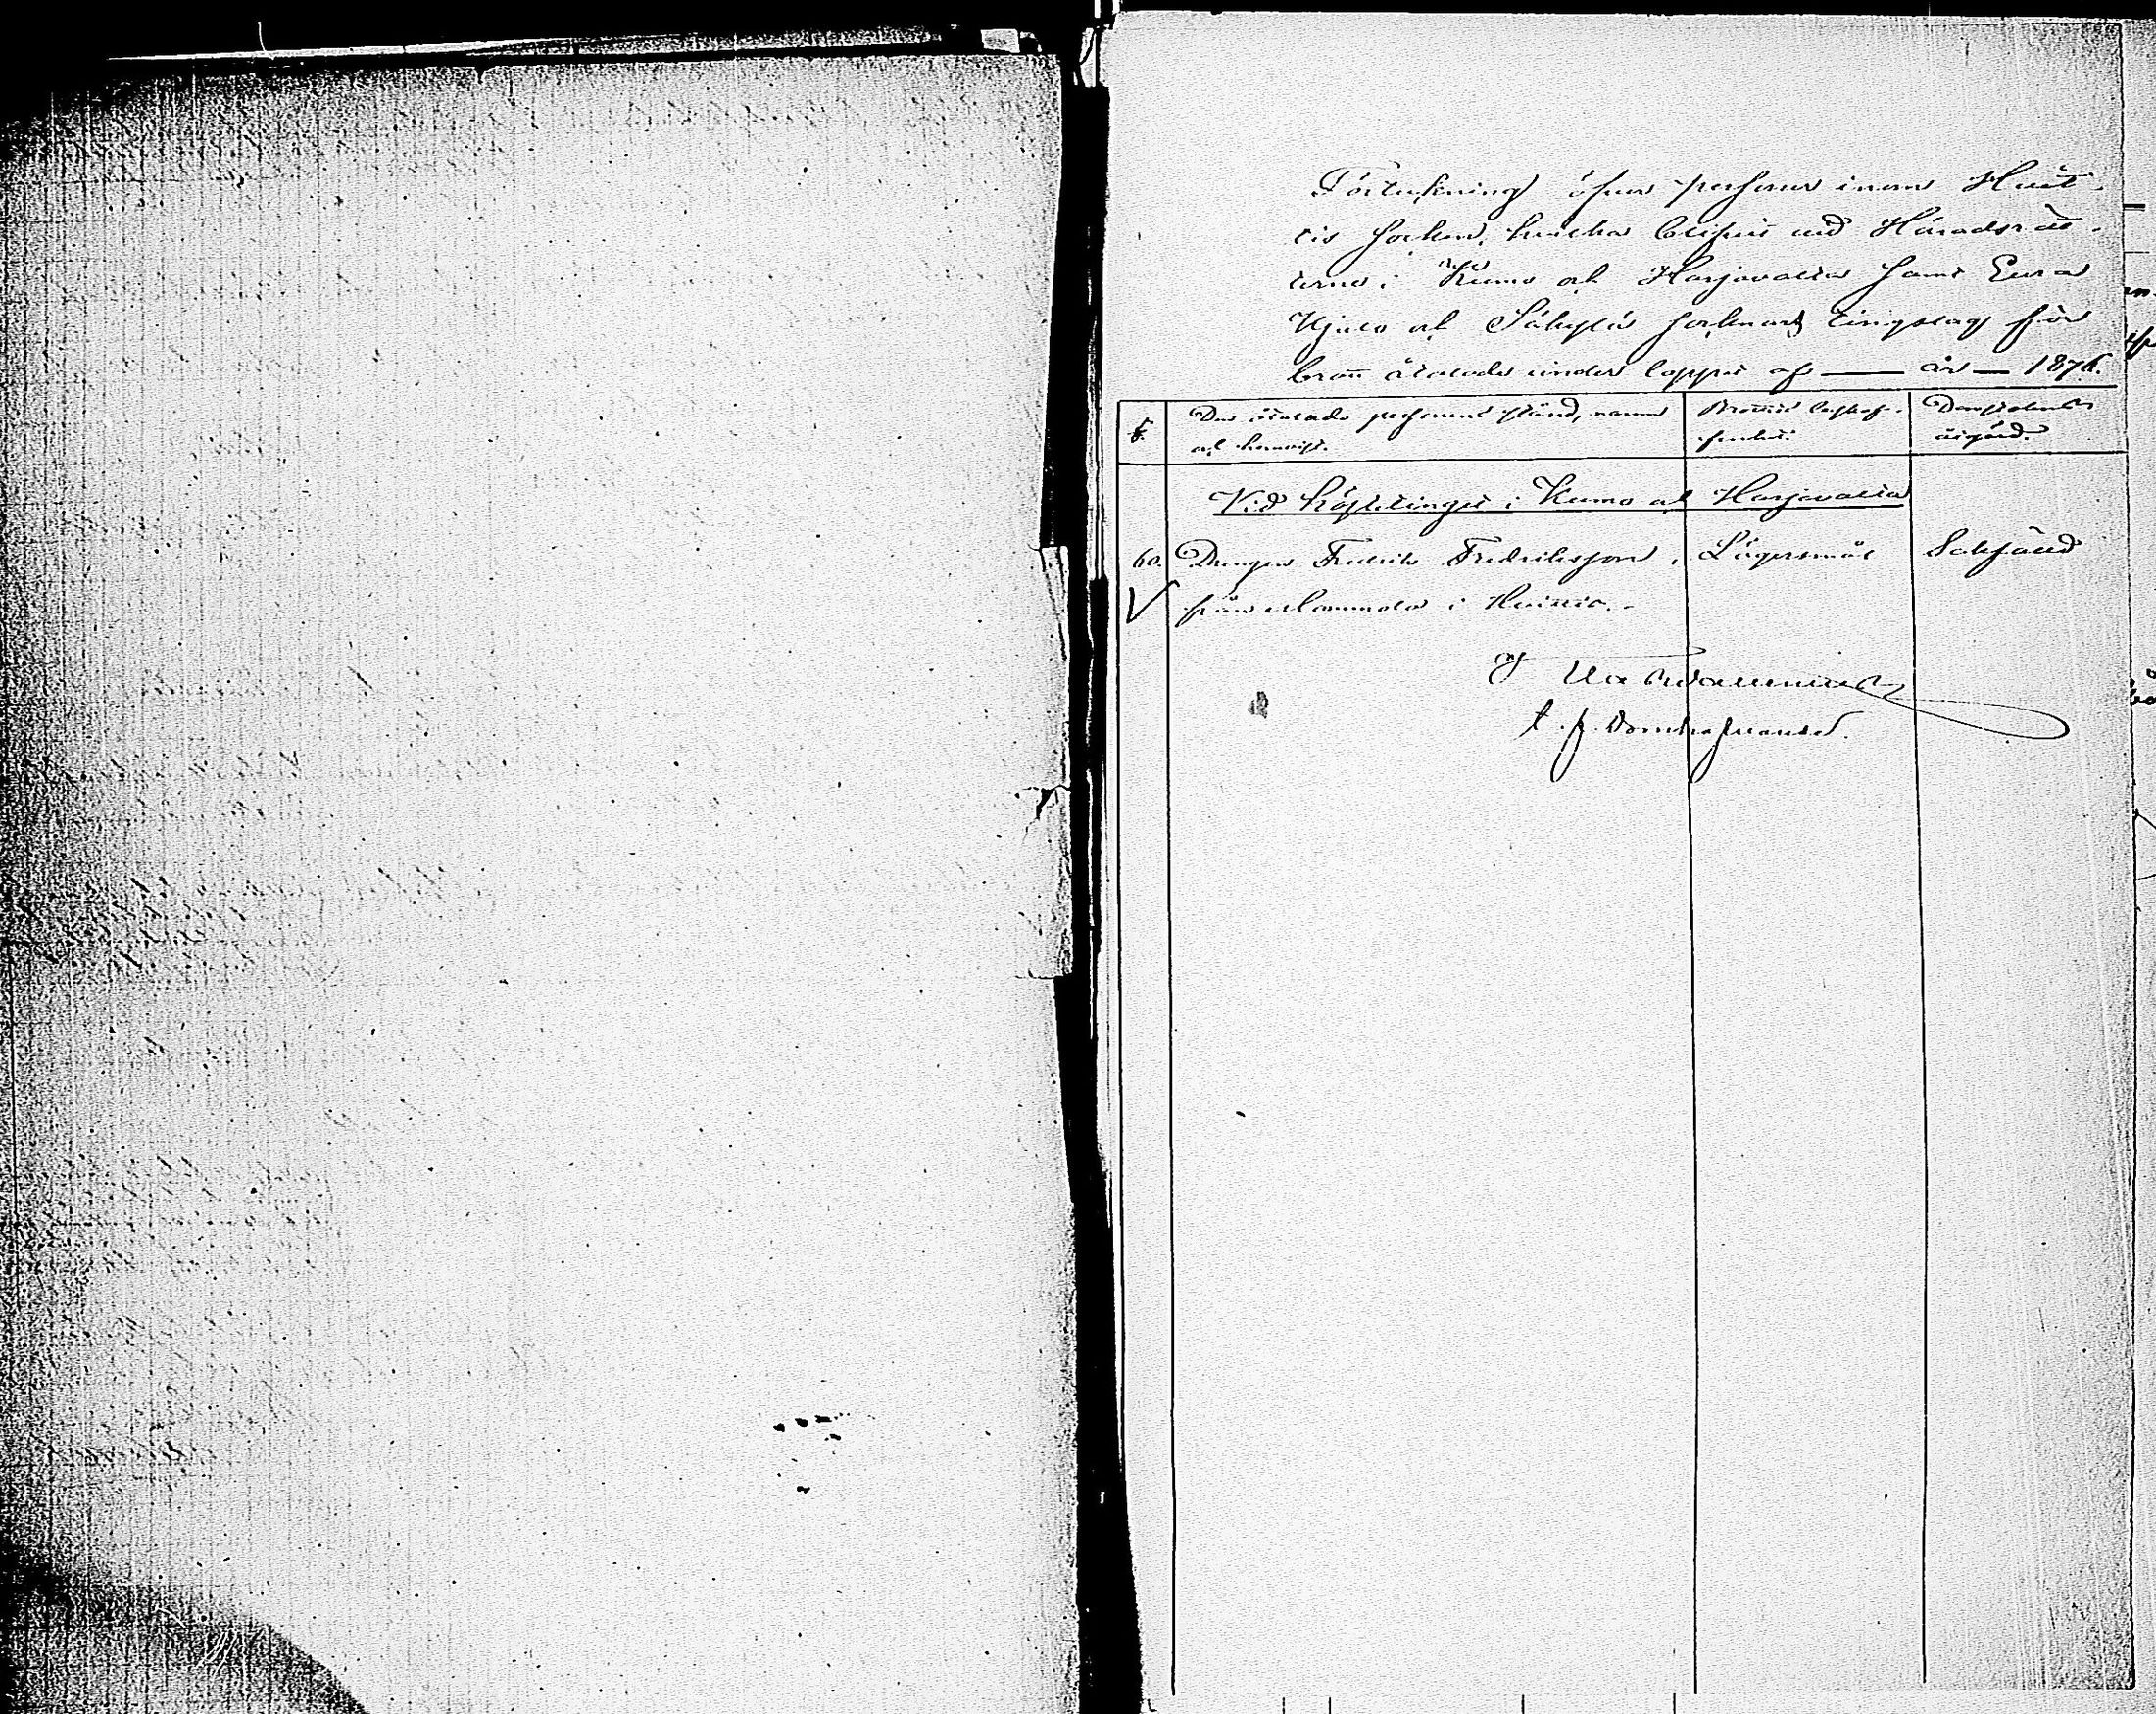 Förteckning öfver personer inom Huit-
tis socken, hvilka blifvit vid Häradsrät-
terne i Kumo och Harjavalta samt Eura
Kjulo och Säkylä socknars tingslag för
brott åtalade under loppet af — år — 1876.
§. De åtalade personers stånd, namn och hemvist. Brottets beskaffenhet. Domstolens åtgärd.
Vid höstetinget i Kumo och Harjavalta
60. Drengen Fredrik Fredriksson, Lägersmål Sakfälld
från Mommola i Huittis.-
t. f. Domhafvande.